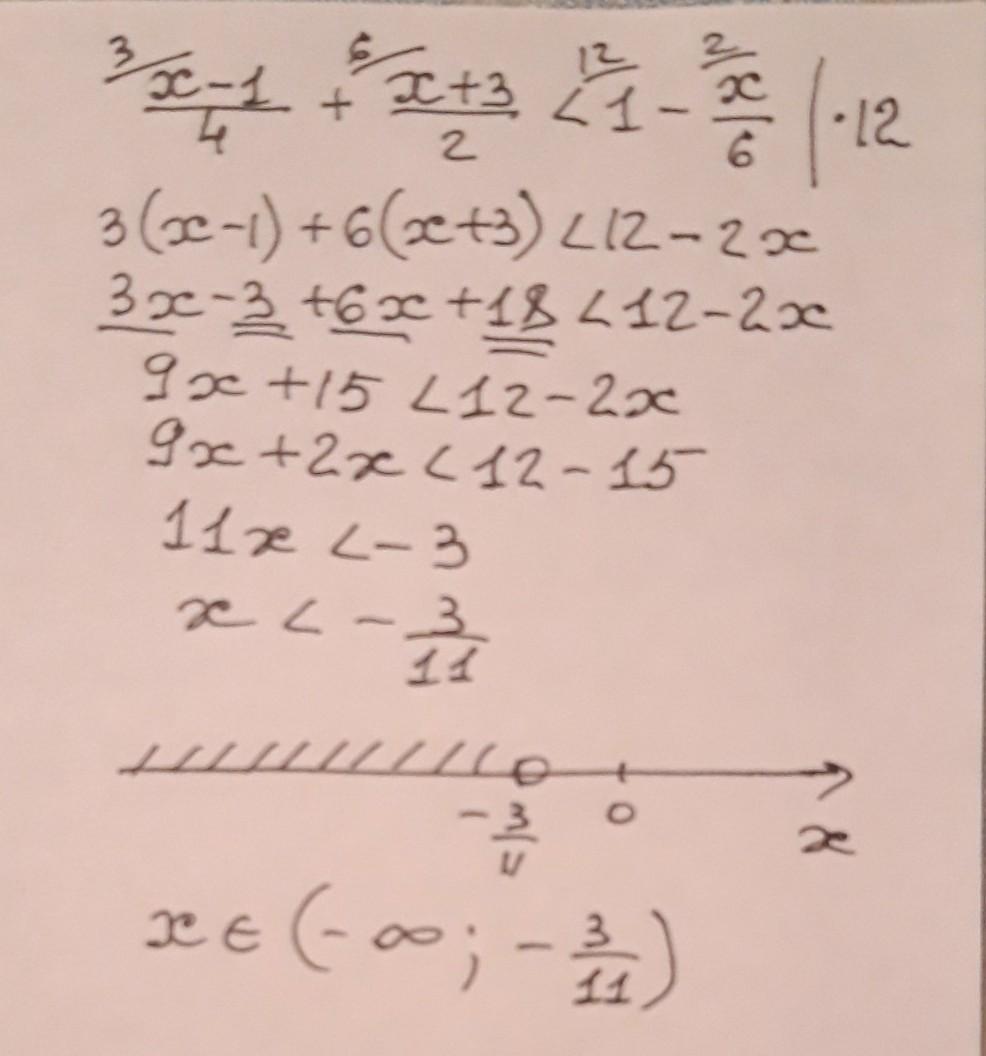 3/ (x-1)/4 + 6/ (x+3)/2 < 12/ 1 - 2/ x/6 | ·12
3(x-1)+6(x+3)<12-2x
3x-3+6x+18<12-2x
9x+15<12-2x
9x+2x<12-15
11x<-3
x<-3/11
-3/11 0 x
x∈(-∞;-3/11)